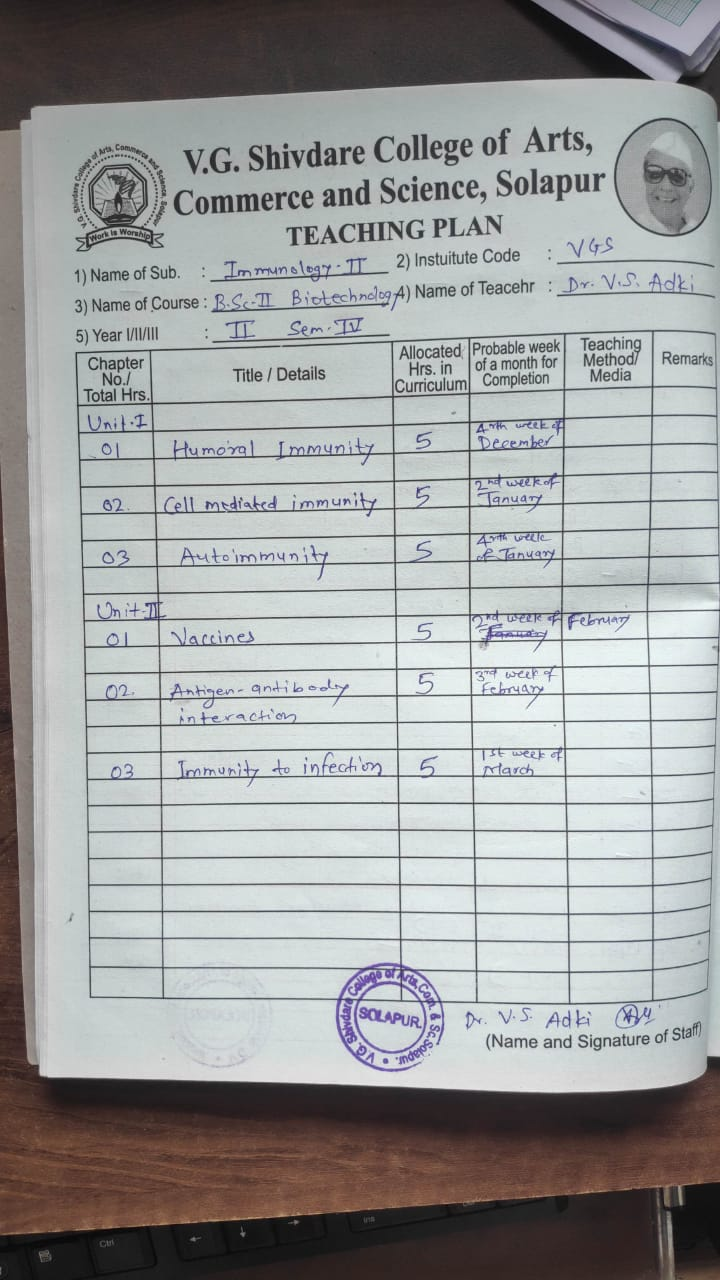 V.G. Shivdare College of Arts, Commerce and Science, Solapur
Work is Worship
V.G. Shivdare College of Arts,
Commerce and Science, Solapur
TEACHING PLAN
1) Name of Sub. : Immunology-II 2) Instuitute Code : VGS
3) Name of Course : B.Sc-II Biotechnology 4) Name of Teacehr : Dr. V.S. Adki
5) Year I/II/III : II Sem-IV
Chapter No./ Total Hrs. Title / Details Allocated Hrs. in Curriculum Probable week of a month for Completion Teaching Method/ Media Remarks
Unit-I
01 Humoral Immunity 5 4rth week of December
02. Cell mediated immunity 5 2nd week of January
03 Autoimmunity 5 4rth week of January
Unit-II
01 Vaccines 5 2nd week of February
02. Antigen-antibody interaction 5 3rd week of February
03 Immunity to infection 5 1st week of March
V.G. Shivdare College of Arts, Com. & Sc. Solapur.
SOLAPUR.
Dr. V.S. Adki
(Name and Signature of Staff)
Ctrl
Ins